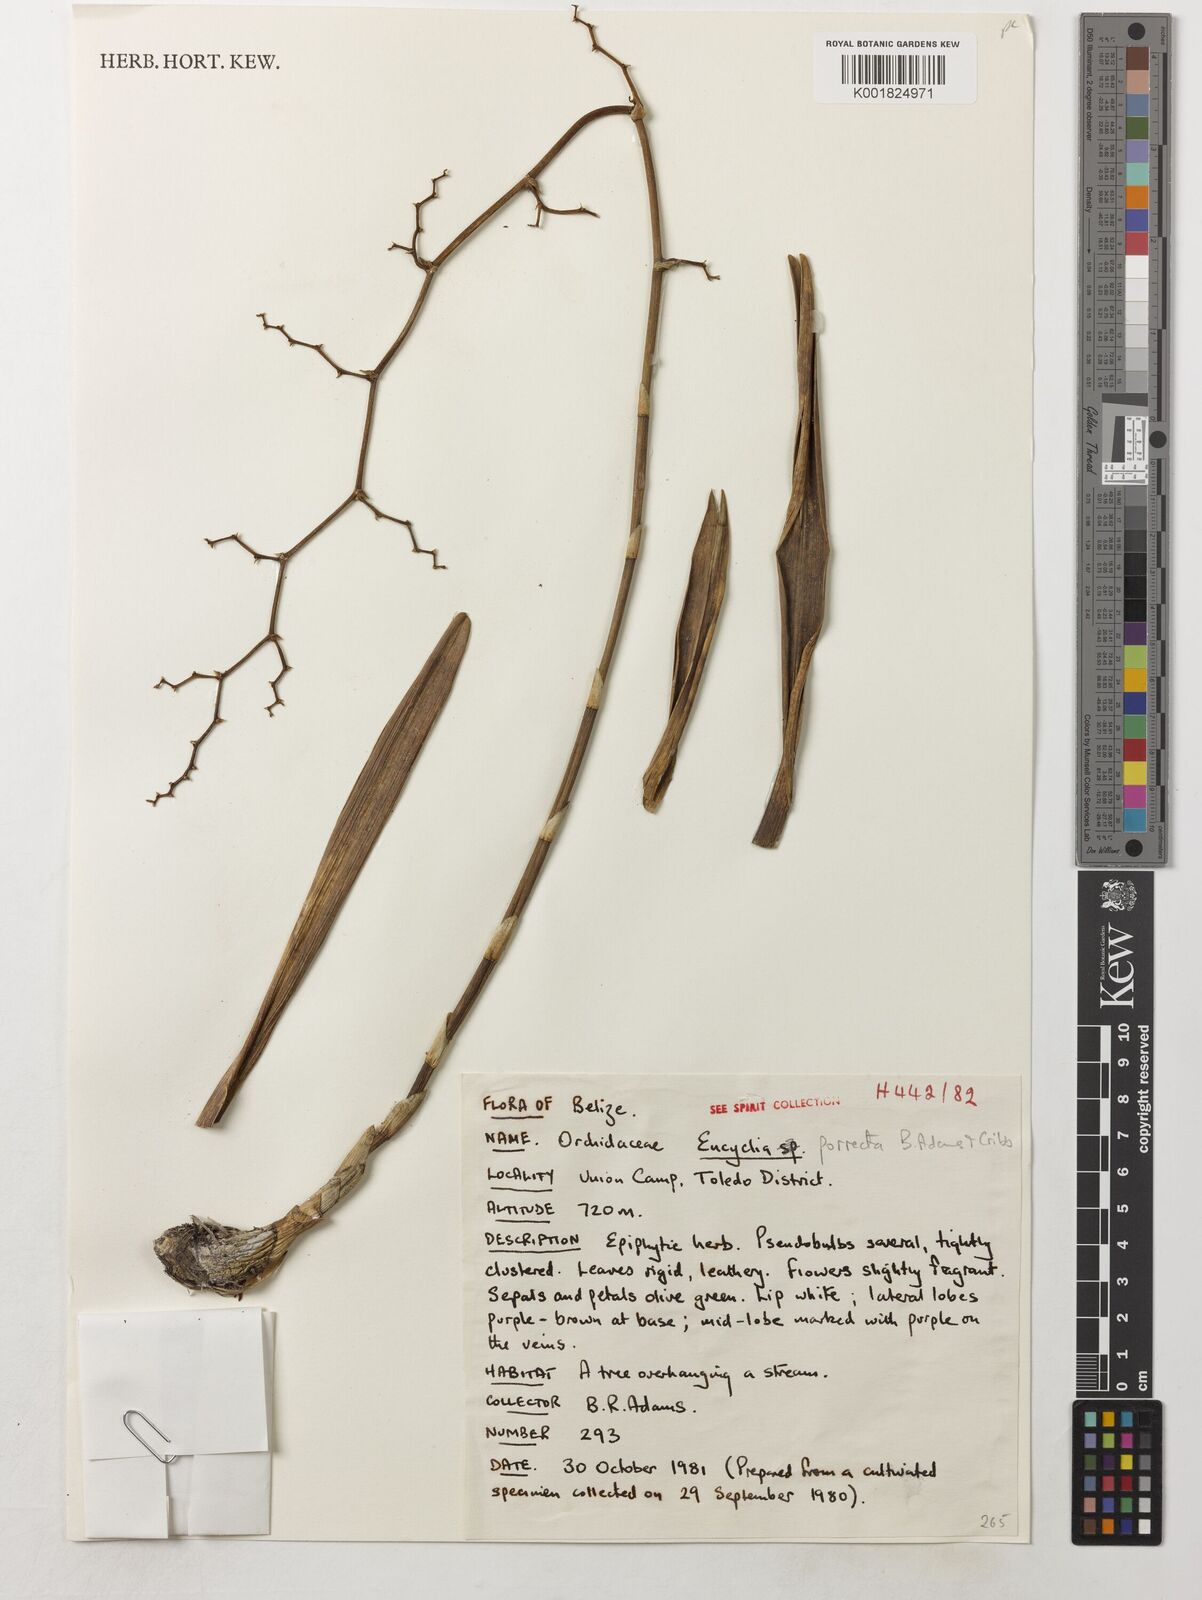 HERB. HORT. KEW.
ROYAL BOTANIC GARDENS KEW
K001824971
SEE SPIRIT COLLECTION
H442/82
FLORA OF Belize.
NAME. Orchidaceae Encyclia sp. porrecta B. Adams & Cribb
LOCALITY Union Camp, Toledo District.
ALTITUDE 720m.
DESCRIPTION Epiphytic herb. Pseudobulbs several, tightly
clustered. Leaves rigid, leathery. Flowers slightly fragrant.
Sepals and petals olive green. Lip white; lateral lobes
purple-brown at base; mid-lobe marked with purple on
the veins.
HABITAT A tree overhanging a stream.
COLLECTOR B.R. Adams.
NUMBER 293
DATE. 30 October 1981 (Prepared from a cultivated
specimen collected on 29 September 1980).
265
Golden Thread
Colors by Munsell Color Services Lab
Don Williams
Royal Botanic Gardens
Kew
copyright reserved
0 1 2 3 4 5 6 7 8 9 10
cm